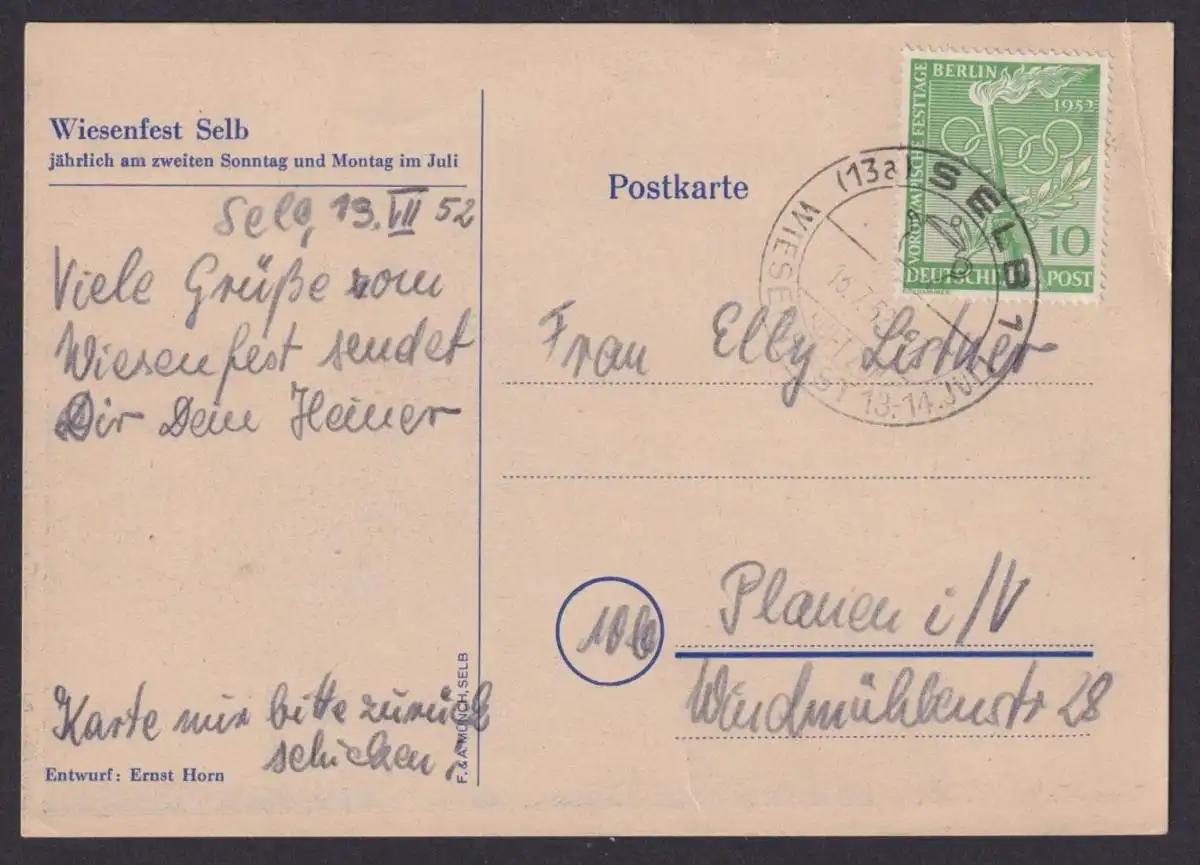 Wiesenfest Selb
jährlich am zweiten Sonntag und Montag im Juli
Selb, 13. VII 52
Viele Grüße vom
Wiesenfest sendet
Dir Dein Heiner
Karte mir bitte zurück
schicken.
Entwurf: Ernst Horn
F. & A. MÜNCH, SELB
Postkarte
VOROLYMPISCHE FESTTAGE BERLIN 1952
10
DEUTSCHE POST
(13a) SELB 1
WIESENFEST 13.-14. JULI
Frau Elly Listner
10b
Plauen i/V
Windmühlenstr 28